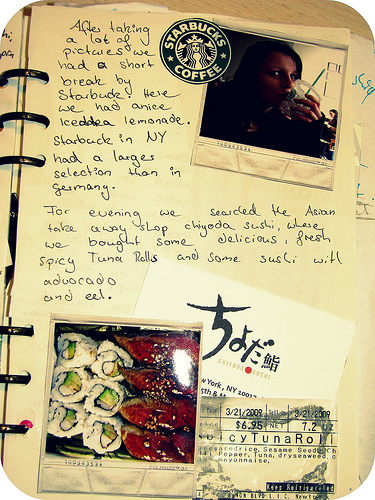 After taking
a lot of
pictures we
had a short
break by
Starbucks. Here
we had a nice
Iced tea lemonade.
Starbucks in NY
had a larger
selection than in
Germany.
STARBUCKS
COFFEE
For evening we searched the Asian
take away shop chiyoda sushi, where
we bought some delicious, fresh
spicy Tuna Rolls and some sushi with
advocado
and eel.
ちよだ鮨
CHIYODA SUSHI
New York, NY
3/21/2009 3/21/2009
$6.95 NET 7.2 oz
Spicy Tuna Roll
Sesame Seed
Pepper, Tuna, dryseaweed
mayonnaise.
Keep Refrigerated